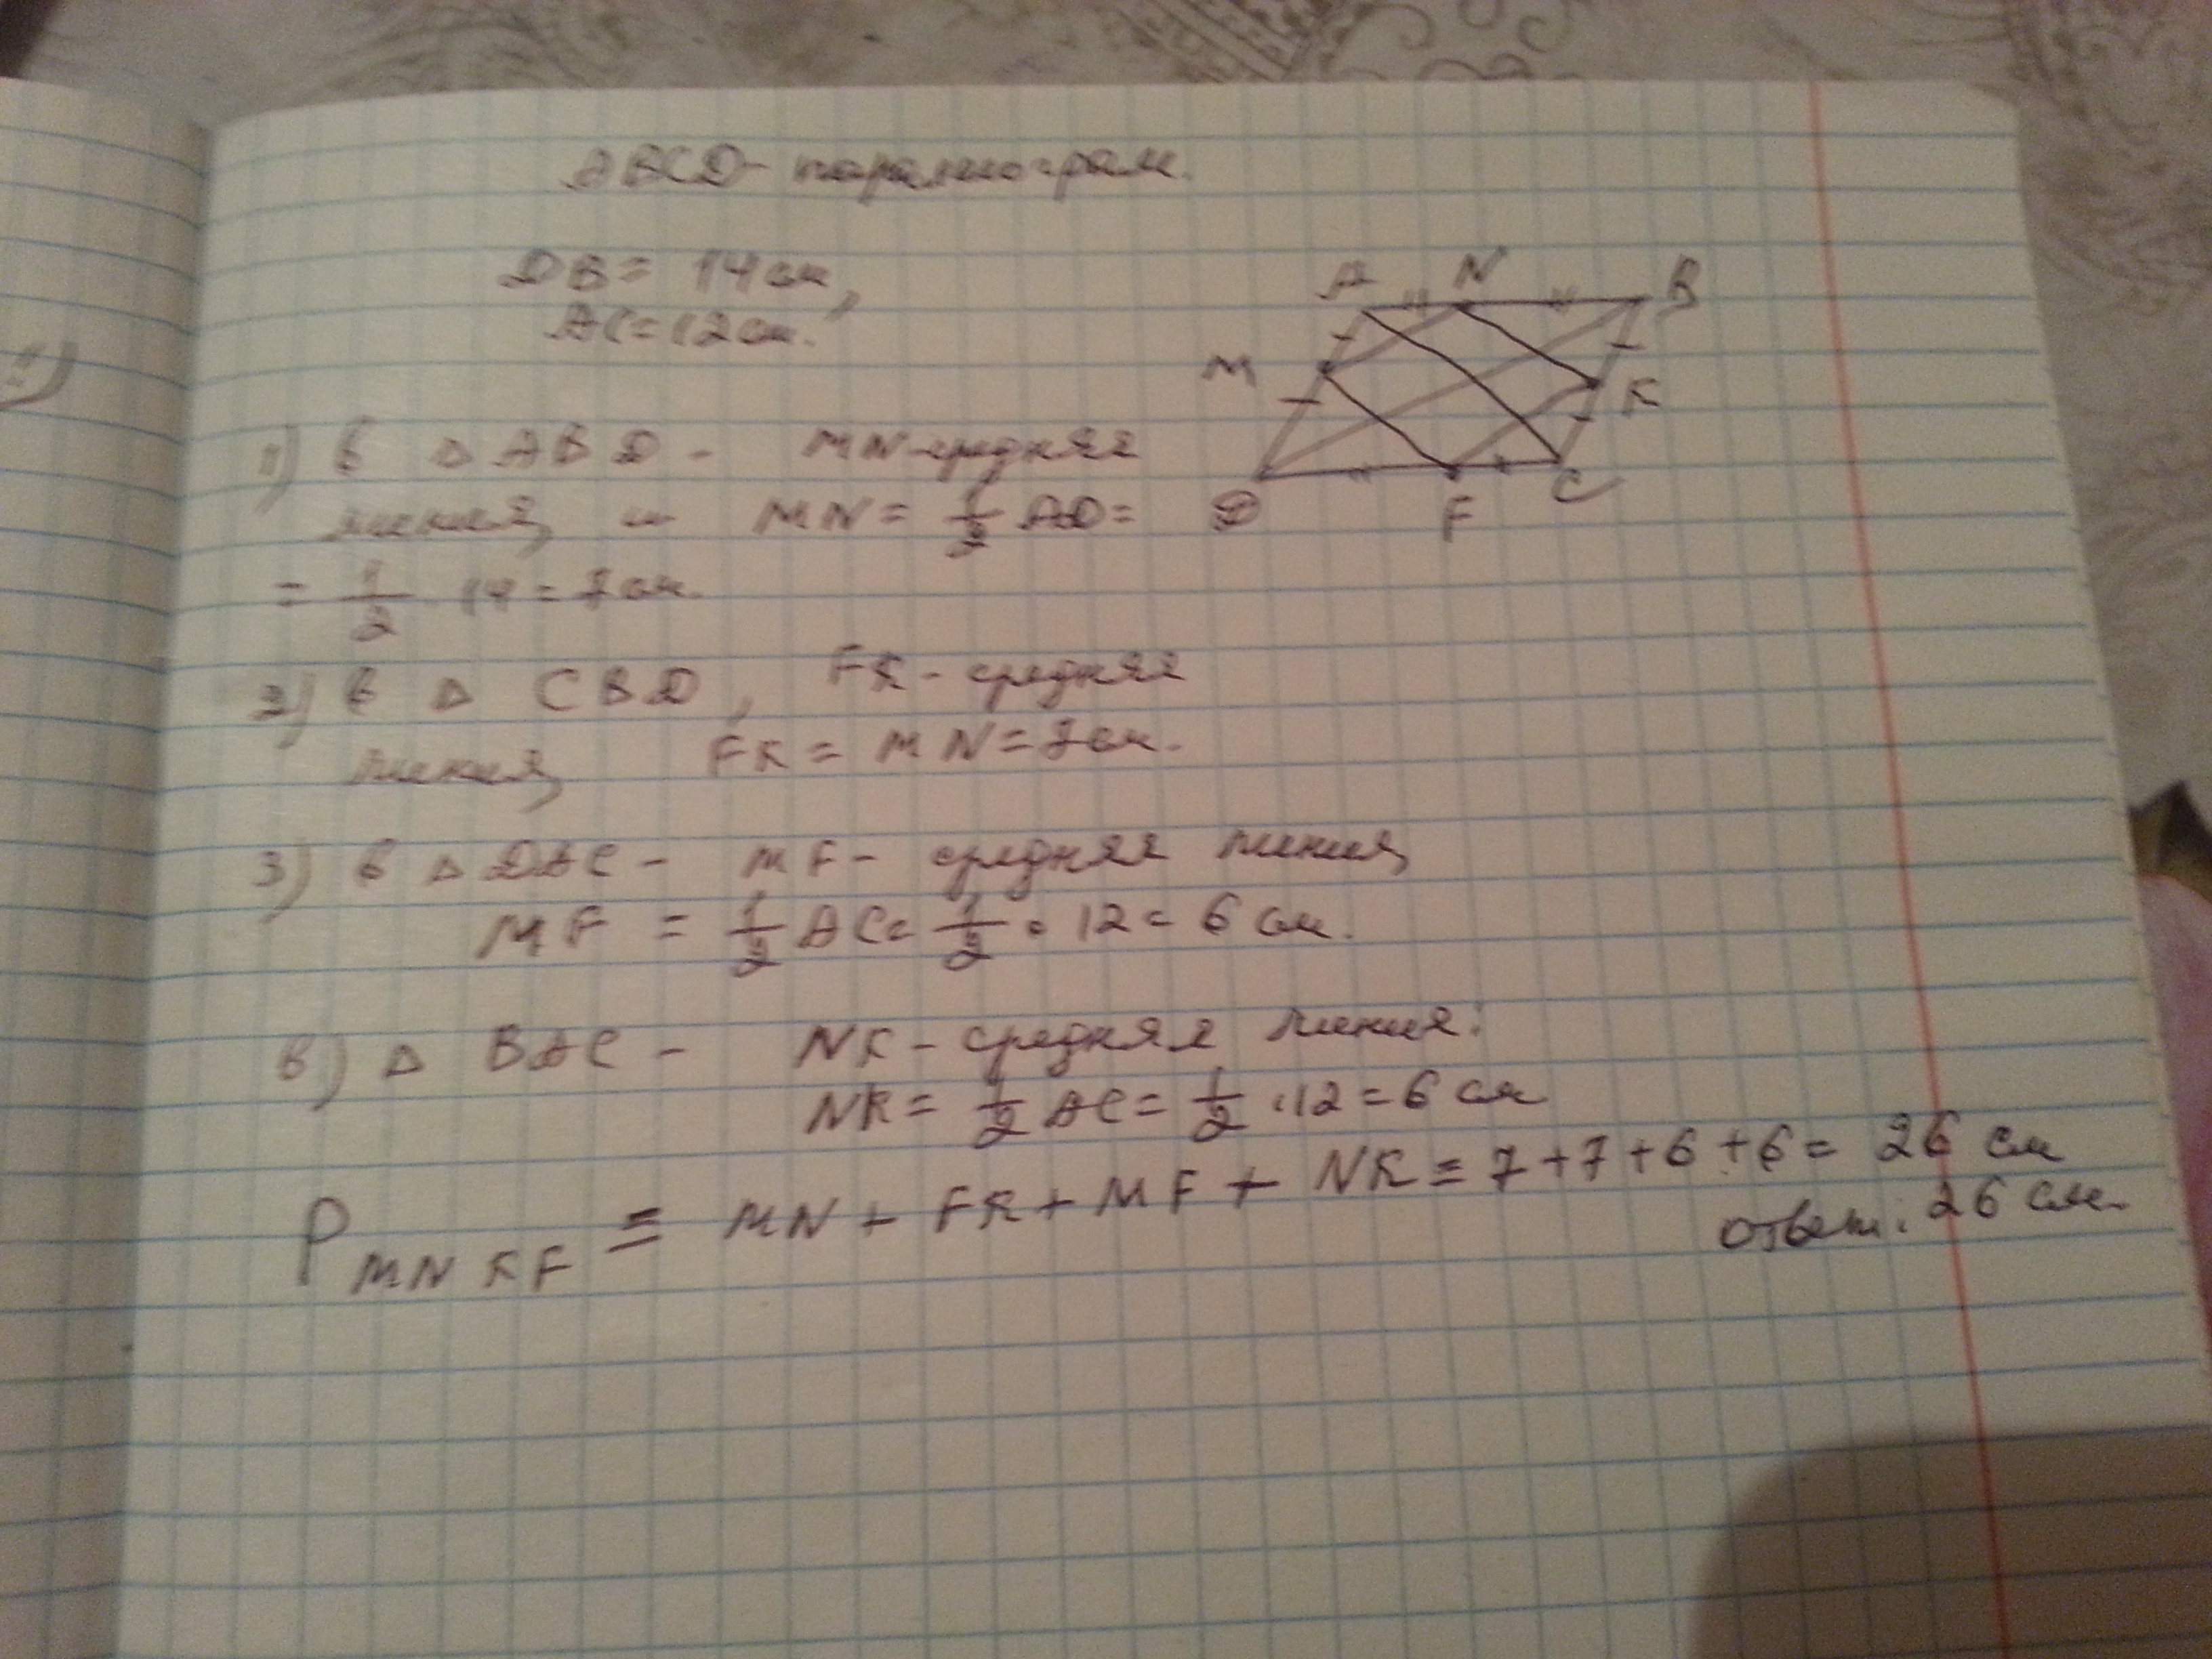 ABCD - паралеограм.
DB = 14 см,
AC = 12 см.
A N B
M K
D F C
1) в △ ABD - MN - средняя
линия, и MN = 1/2 AD =
= 1/2 · 14 = 7 см.
2) в △ CBD, FK - средняя
линия, FK = MN = 7 см.
3) в △ DAC - MF - средняя линия,
MF = 1/2 AC = 1/2 · 12 = 6 см.
в) △ BAC - NK - средняя линия:
NK = 1/2 AC = 1/2 · 12 = 6 см
P MNKF = MN + FK + MF + NK = 7 + 7 + 6 + 6 = 26 см
ответ: 26 см.